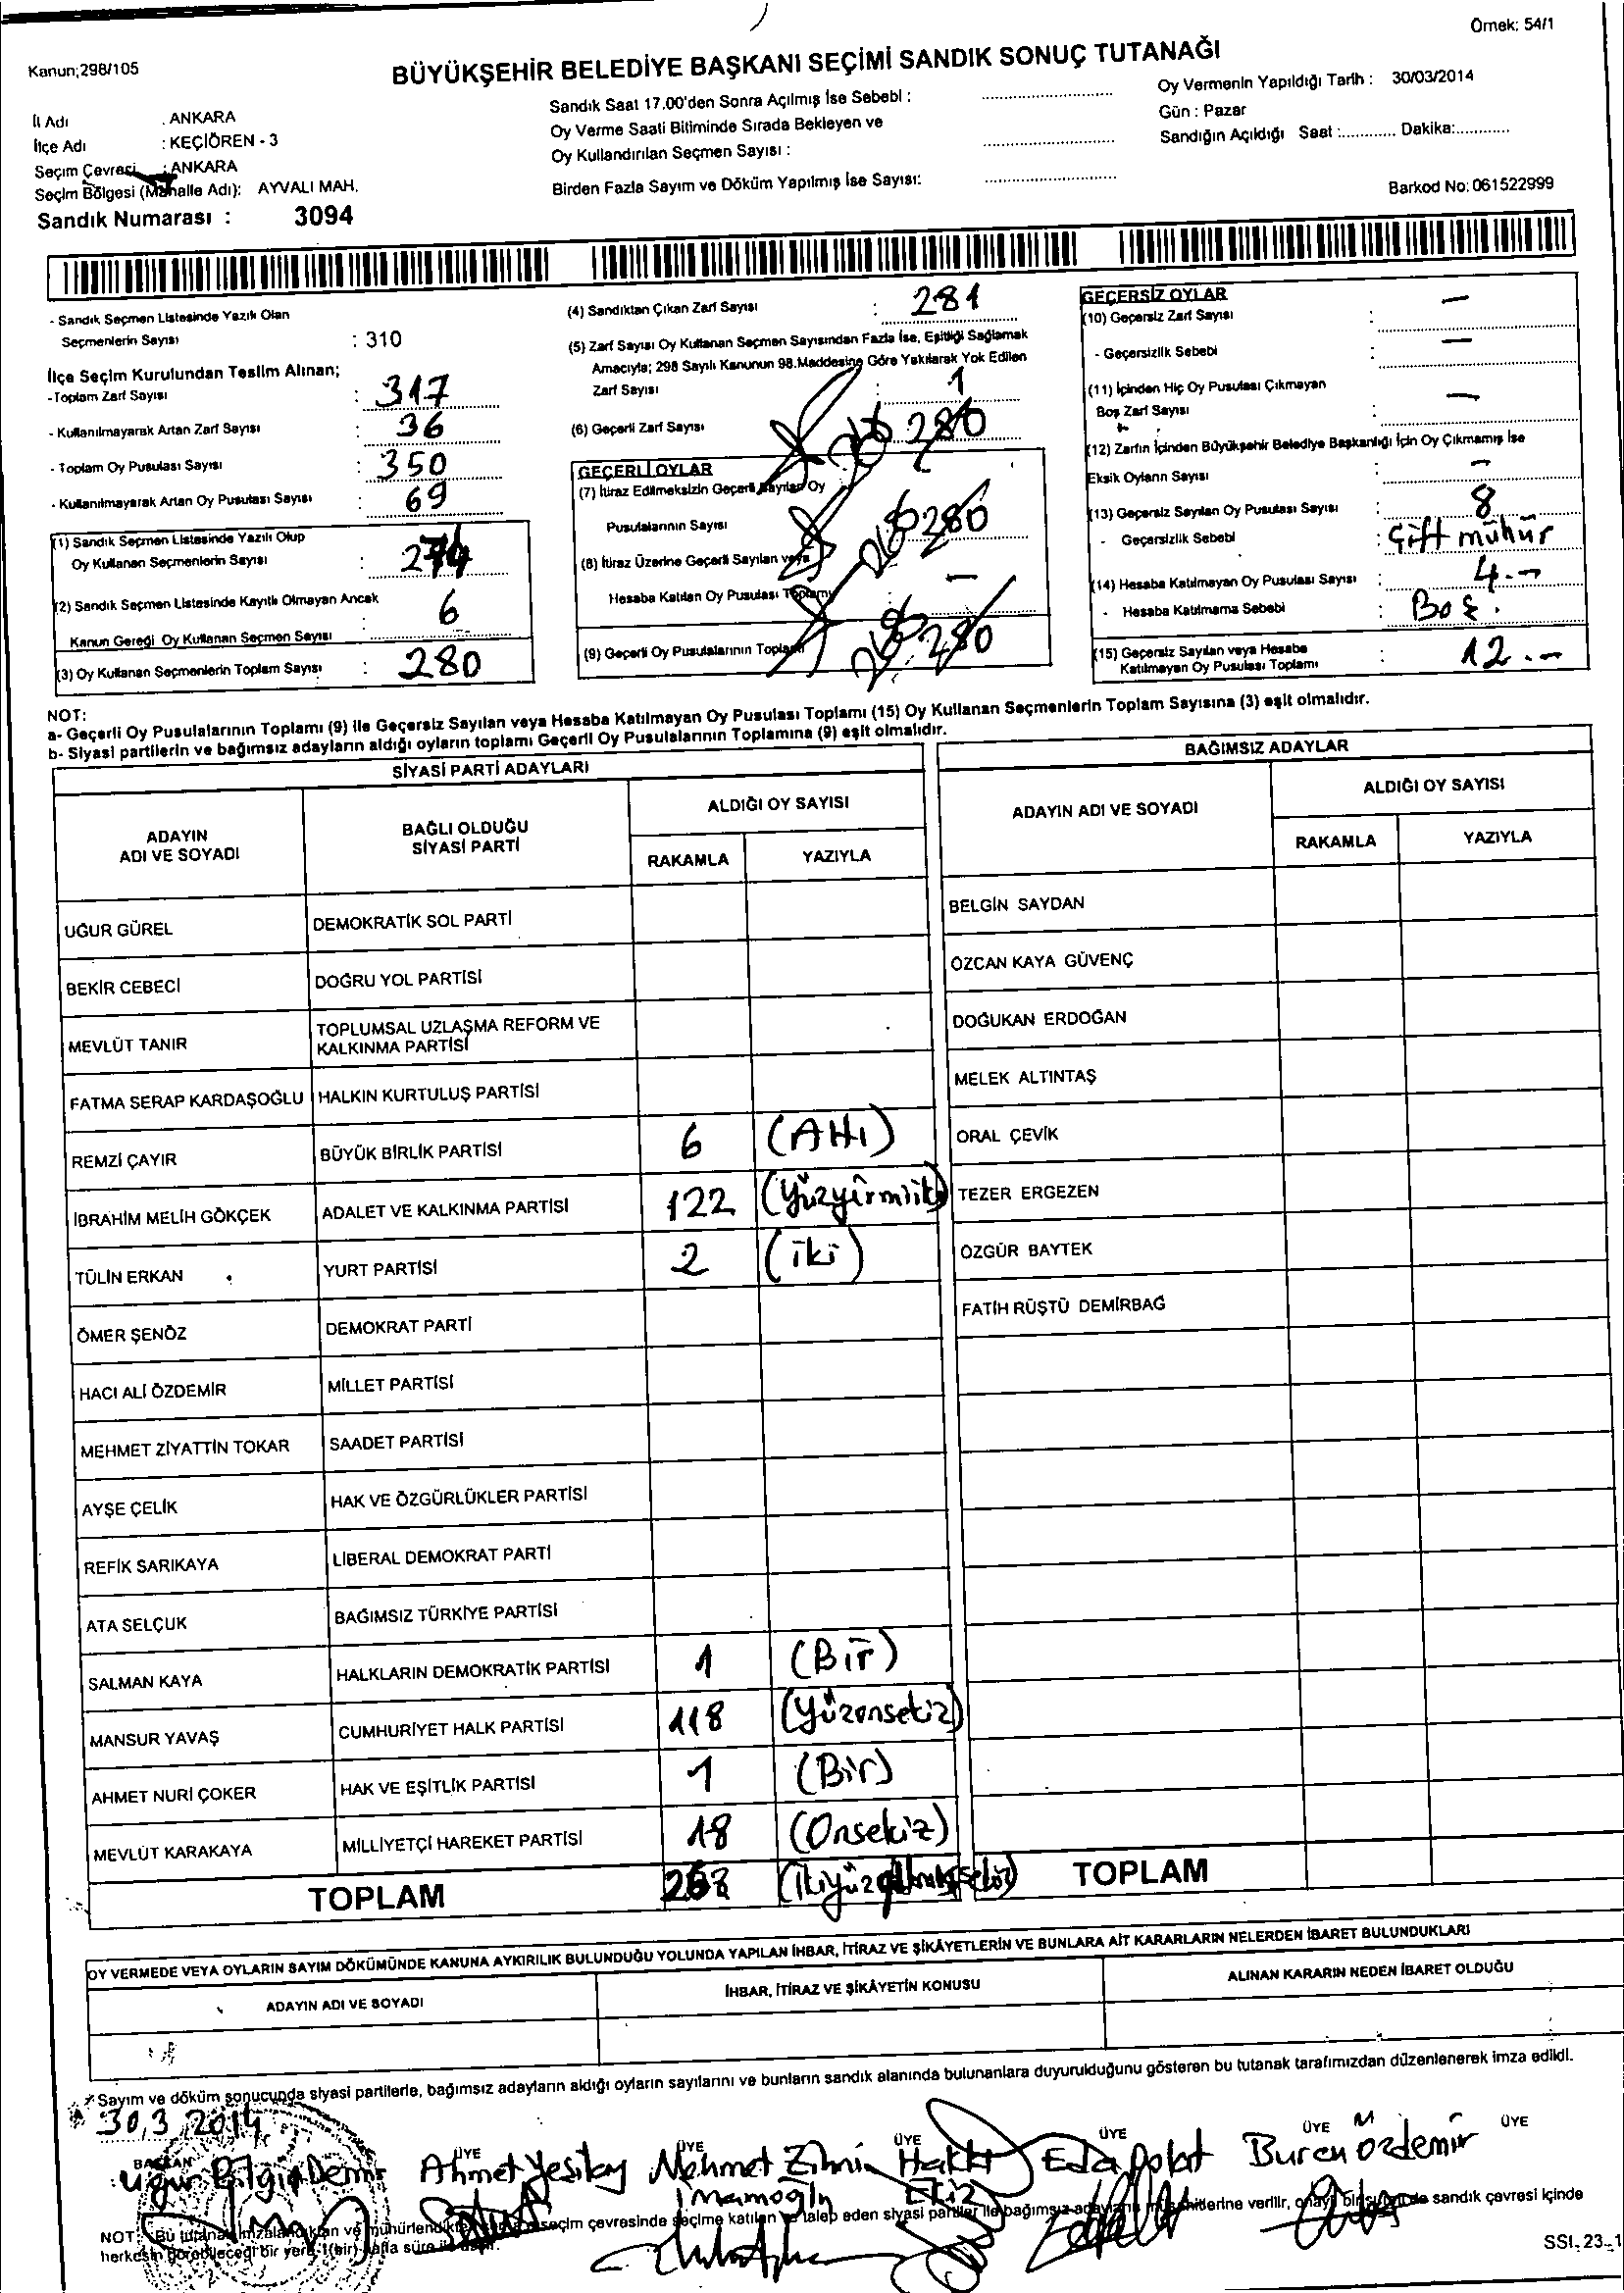 Örnek: 54/1
Kanun;298/105
BÜYÜKŞEHİR BELEDİYE BAŞKANI SEÇİMİ SANDIK SONUÇ TUTANAĞI
İl Adı : ANKARA
İlçe Adı : KEÇİÖREN - 3
Seçim Çevresi : ANKARA
Seçim Bölgesi (Mahalle Adı): AYVALI MAH.
Sandık Numarası : 3094
Sandık Saat 17.00'den Sonra Açılmış İse Sebebi :
Oy Verme Saati Bitiminde Sırada Bekleyen ve
Oy Kullandırılan Seçmen Sayısı :
Birden Fazla Sayım ve Döküm Yapılmış İse Sayısı:
Oy Vermenin Yapıldığı Tarih : 30/03/2014
Gün : Pazar
Sandığın Açıldığı Saat :............ Dakika:............
Barkod No: 061522999
- Sandık Seçmen Listesinde Yazılı Olan
Seçmenlerin Sayısı : 310
İlçe Seçim Kurulundan Teslim Alınan;
-Toplam Zarf Sayısı : 317
- Kullanılmayarak Artan Zarf Sayısı : 36
- Toplam Oy Pusulası Sayısı : 350
- Kullanılmayarak Artan Oy Pusulası Sayısı : 69
(1) Sandık Seçmen Listesinde Yazılı Olup
Oy Kullanan Seçmenlerin Sayısı : 274
(2) Sandık Seçmen Listesinde Kayıtlı Olmayan Ancak
Kanun Gereği Oy Kullanan Seçmen Sayısı : 6
(3) Oy Kullanan Seçmenlerin Toplam Sayısı : 280
(4) Sandıktan Çıkan Zarf Sayısı : 281
(5) Zarf Sayısı Oy Kullanan Seçmen Sayısından Fazla İse, Eşitliği Sağlamak
Amacıyla; 298 Sayılı Kanunun 98.Maddesine Göre Yakılarak Yok Edilen
Zarf Sayısı : 1
(6) Geçerli Zarf Sayısı 280
GEÇERLİ OYLAR
(7) İtiraz Edilmeksizin Geçerli Sayılan Oy
Pusulalarının Sayısı 280
(8) İtiraz Üzerine Geçerli Sayılan veya
Hesaba Katılan Oy Pusulası Toplamı —
(9) Geçerli Oy Pusulalarının Toplamı 280
GEÇERSİZ OYLAR
(10) Geçersiz Zarf Sayısı : —
- Geçersizlik Sebebi : —
(11) İçinden Hiç Oy Pusulası Çıkmayan
Boş Zarf Sayısı : —
(12) Zarfın İçinden Büyükşehir Belediye Başkanlığı İçin Oy Çıkmamış İse
Eksik Oyların Sayısı : —
(13) Geçersiz Sayılan Oy Pusulası Sayısı : 8
- Geçersizlik Sebebi : Çift mühür
(14) Hesaba Katılmayan Oy Pusulası Sayısı : 4.-
- Hesaba Katılmama Sebebi : Boş.
(15) Geçersiz Sayılan veya Hesaba
Katılmayan Oy Pusulası Toplamı : 12.-
NOT:
a- Geçerli Oy Pusulalarının Toplamı (9) ile Geçersiz Sayılan veya Hesaba Katılmayan Oy Pusulası Toplamı (15) Oy Kullanan Seçmenlerin Toplam Sayısına (3) eşit olmalıdır.
b- Siyasi partilerin ve bağımsız adayların aldığı oyların toplamı Geçerli Oy Pusulalarının Toplamına (9) eşit olmalıdır.
SİYASİ PARTİ ADAYLARI
ADAYIN
ADI VE SOYADI
BAĞLI OLDUĞU
SİYASİ PARTİ
ALDIĞI OY SAYISI
RAKAMLA YAZIYLA
UĞUR GÜREL DEMOKRATİK SOL PARTİ
BEKİR CEBECİ DOĞRU YOL PARTİSİ
MEVLÜT TANIR TOPLUMSAL UZLAŞMA REFORM VE
KALKINMA PARTİSİ
FATMA SERAP KARDAŞOĞLU HALKIN KURTULUŞ PARTİSİ
REMZİ ÇAYIR BÜYÜK BİRLİK PARTİSİ 6 (Altı)
İBRAHİM MELİH GÖKÇEK ADALET VE KALKINMA PARTİSİ 122 (Yüzyirmiiki)
TÜLİN ERKAN YURT PARTİSİ 2 (iki)
ÖMER ŞENÖZ DEMOKRAT PARTİ
HACI ALİ ÖZDEMİR MİLLET PARTİSİ
MEHMET ZİYATTİN TOKAR SAADET PARTİSİ
AYŞE ÇELİK HAK VE ÖZGÜRLÜKLER PARTİSİ
REFİK SARIKAYA LİBERAL DEMOKRAT PARTİ
ATA SELÇUK BAĞIMSIZ TÜRKİYE PARTİSİ
SALMAN KAYA HALKLARIN DEMOKRATİK PARTİSİ 1 (Bir)
MANSUR YAVAŞ CUMHURİYET HALK PARTİSİ 118 (Yüzonsekiz)
AHMET NURİ ÇOKER HAK VE EŞİTLİK PARTİSİ 1 (Bir)
MEVLÜT KARAKAYA MİLLİYETÇİ HAREKET PARTİSİ 18 (Onsekiz)
TOPLAM 268 (İkiyüzaltmışsekiz)
BAĞIMSIZ ADAYLAR
ADAYIN ADI VE SOYADI
ALDIĞI OY SAYISI
RAKAMLA YAZIYLA
BELGİN SAYDAN
ÖZCAN KAYA GÜVENÇ
DOĞUKAN ERDOĞAN
MELEK ALTINTAŞ
ORAL ÇEVİK
TEZER ERGEZEN
ÖZGÜR BAYTEK
FATİH RÜŞTÜ DEMİRBAĞ
TOPLAM
OY VERMEDE VEYA OYLARIN SAYIM DÖKÜMÜNDE KANUNA AYKIRILIK BULUNDUĞU YOLUNDA YAPILAN İHBAR, İTİRAZ VE ŞİKÂYETLERİN VE BUNLARA AİT KARARLARIN NELERDEN İBARET BULUNDUKLARI
ADAYIN ADI VE SOYADI
İHBAR, İTİRAZ VE ŞİKÂYETİN KONUSU
ALINAN KARARIN NEDEN İBARET OLDUĞU
Sayım ve döküm sonucunda siyasi partilerle, bağımsız adayların aldığı oyların sayılarını ve bunların sandık alanında bulunanlara duyurulduğunu gösteren bu tutanak tarafımızdan düzenlenerek imza edildi.
30,3,2014
BAŞKAN ÜYE ÜYE ÜYE ÜYE ÜYE ÜYE
Uğur Bilgin Demir Ahmet Yesilay Mehmet Zihni Hakkı Eda Polat Burcu Özdemir
İmamoğlu
NOT: Bu tutanak imzalandıktan ve mühürlendikten seçim çevresinde seçime katılan ve talep eden siyasi partiler ile bağımsız adayların müşahitlerine verilir, sandık çevresi içinde
herkesin görebileceği bir yere 1(bir) hafta süre ile
SSI, 23_1